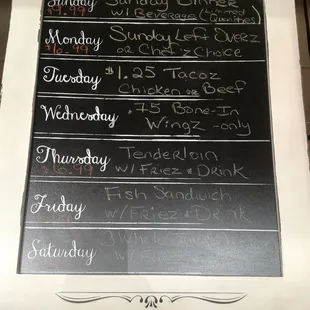 Sunday Sunday Dinner
$9.99 w/ Beverage (Limited Quantities)
Monday Sunday Left Overz
$6.99 or Chef'z Choice
Tuesday $1.25 Tacoz
Chicken or Beef
Wednesday .75 Bone-In
Wingz - only
Thursday Tenderloin
$6.99 w/ Friez & Drink
Friday Fish Sandwich
w/ Friez & Drink
Saturday 3
w/ Friez